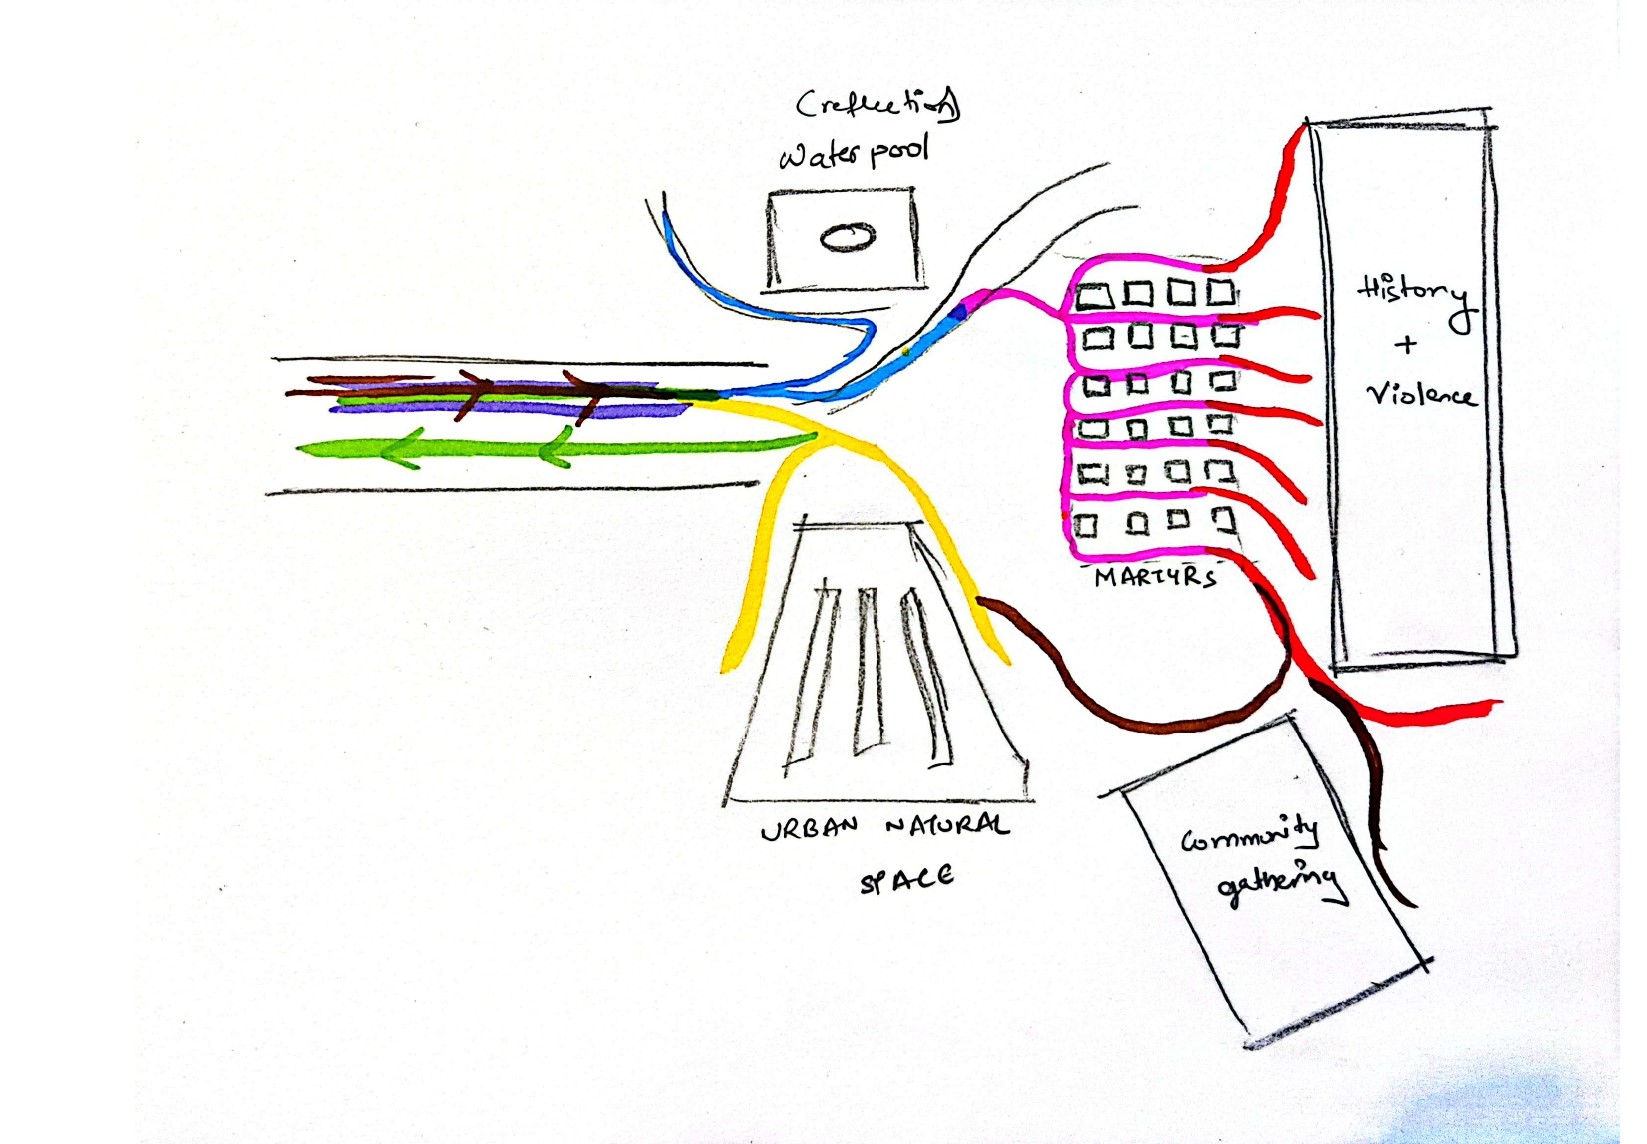 (reflection)
Water pool
History
+
Violence
MARTYRS
URBAN NATURAL
SPACE
Community
gathering